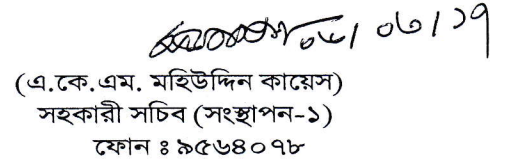 ০৬/০৬/১৭
(এ.কে.এম. মহিউদ্দিন কায়েস)
সহকারী সচিব (সংস্থাপন-১)
ফোন ঃ ৯৫৬৪০৭৮